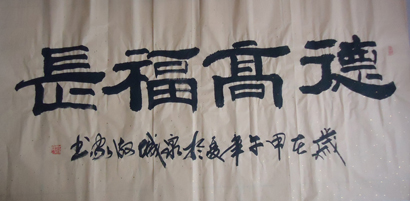 德高福長
歲在甲午年夏於泉城